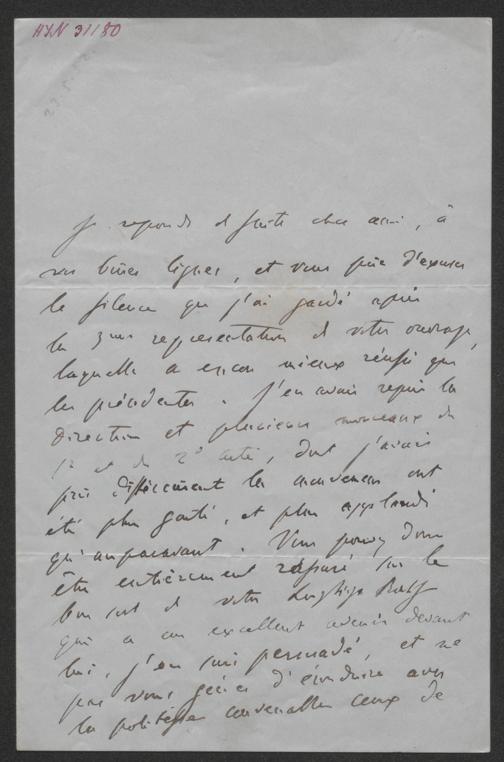 HXN 31/80
Je reponds de suite cher ami, à
vos lignes, et vous prie d'excuser
le silence que j'ai gardé après
la 3me representation de votre ouvrage,
laquelle a encor mieux réussi que
les précédentes. J'en avais repris la
Direction et plusieurs morceaux du
1r et du 2e acte, dont j'avais
pris différemment les mouvemens ont
été plus gouté, et plus applaudi
qu'auparavant. Vous pouvez donc
être entièrement rassuré sur le
bon sort de votre
qui a un excellent avenir devant
lui, j'en suis persuadé, et ne
pas vous gêner d'éconduire avec
la politesse convenable ceux de